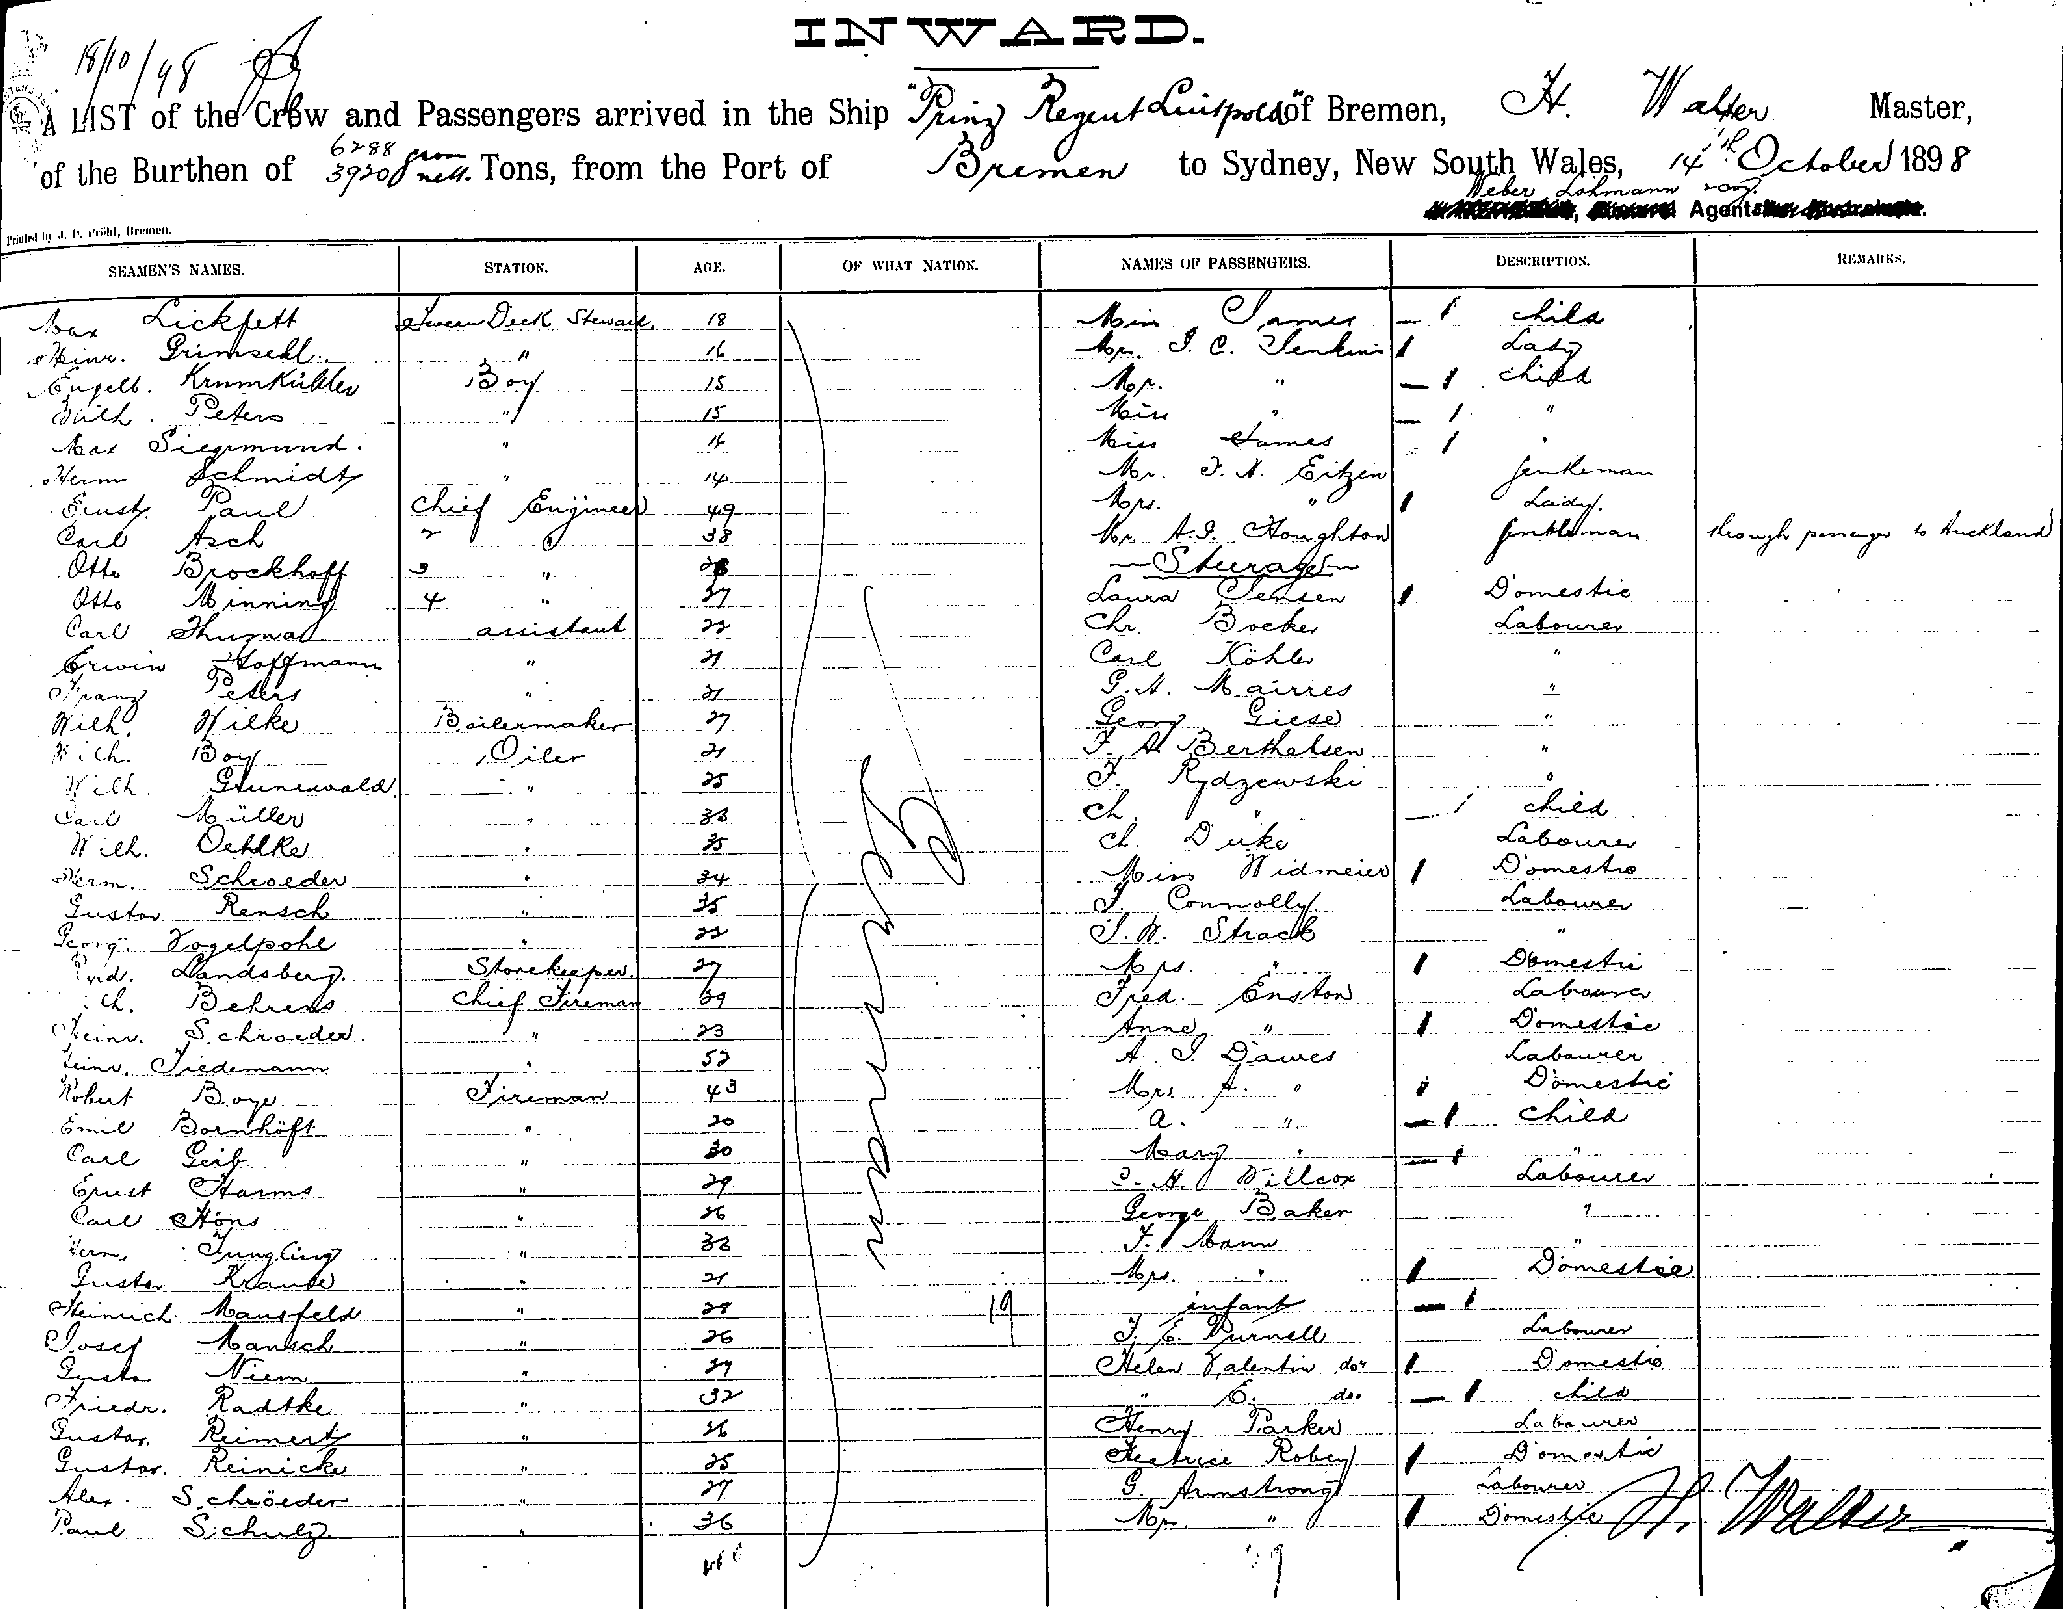 INWARD.
18/10/98
A LIST of the Crew and Passengers arrived in the Ship "Prinz Regent Luitpold" of Bremen, H. Walter Master,
6288 gross
of the Burthen of 3920 nett. Tons, from the Port of Bremen to Sydney, New South Wales, 14th October 1898
Weber Lohmann Agents
Printed by J. H. Pröhl, Bremen.
SEAMEN'S NAMES. STATION. AGE. OF WHAT NATION. NAMES OF PASSENGERS. DESCRIPTION. REMARKS.
Max Lickfett Tween Deck Steward. 18 Miss James — 1 child
Heinr. Grimsehl " 16 Mrs. J. C. Jenkins 1 Lady
Engelb. Krumkühler Boy 15 Mr. " — 1 child
Wilh. Peters " 15 Miss " — 1 "
Max Siegmund. " 16 Miss James — 1 "
Herm Schmidt " 14 Mr. F. A. Eitzen gentleman
Ernst Paul Chief Engineer 49 Mrs. " 1 Lady.
Carl Asch 2 " 38 Mr A. J. Houghton gentleman through passenger to Auckland
Otto Brockhoff 3 " 28 — Steerage —
Otto Minning 4 " 27 Laura Jensen 1 Domestic
Carl Thurnau assistant 22 Chr. Bocker Labourer
Erwin Hoffmann " 21 Carl Köhler "
Franz Peters " 21 G. A. Mairres "
Wilh. Wilke Boilermaker 27 Georg Giese "
Wilh. Boy Oiler 21 F. A. Berthelsen "
Wilh. Grunewald. " 25 F. Rydzewski "
Carl Müller " 33 Ch. " — 1 child
Wilh. Oehlke " 35 Ch. Duke Labourer
Herm. Schroeder " 34 Miss Widmeier 1 Domestic
Gustav Rensch " 35 J. Connolly Labourer
Georg. Vogelpohl " 22 J. W. Strack "
Rud. Landsberg. Storekeeper. 27 Mrs. " 1 Domestic
Ch. Behrens Chief Fireman 39 Fred. Enston Labourer
Heinr. Schroeder. " 23 Anne " 1 Domestic
Heinr. Tiedemann " 52 A. J. Dawes Labourer
Robert Boye Fireman 43 Mrs A. " 1 Domestic
Emil Bornhöft " 20 A. " — 1 child
Carl Geib " 30 Mary " — 1 "
Ernst Harms " 29 J. H. Willcox Labourer
Carl Höns " 26 George Baker "
Herm. Jüngling " 33 F. Mann "
Gustav Krause " 21 Mrs. " 1 Domestic
Heinrich Mansfeld " 29 19 infant — 1
Josef Mansch " 26 F. E. Purnell Labourer
Gustav Niem " 27 Helen Valentin do. 1 Domestic
Friedr. Radtke " 32 " E. do. — 1 child
Gustav. Reimert " 26 Henry Parker Labourer
Gustav. Reinicke " 25 Beatrice Robey 1 Domestic
Alex. Schröeder " 27 G. Armstrong Labourer
Paul Schulz " 36 Mrs. " 1 Domestic
German
H. Walter